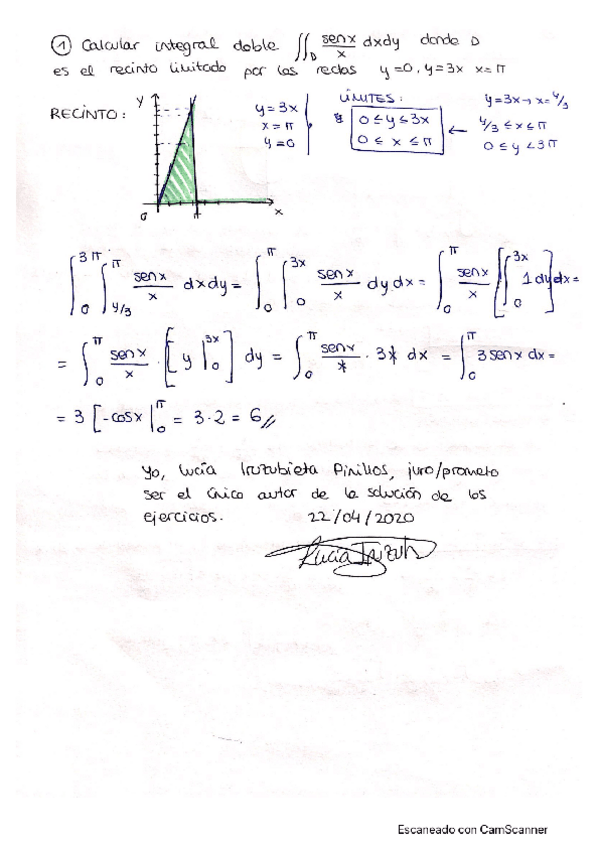 ① Calcular integral doble ∬_D senx/x dxdy donde D
es el recinto limitado por las rectas y=0, y=3x x=π
RECINTO:
y
x
0
π
y=3x
x=π
y=0
LÍMITES:
0 ≤ y ≤ 3x
0 ≤ x ≤ π
←
y=3x → x=y/3
y/3 ≤ x ≤ π
0 ≤ y ≤ 3π
∫_0^{3π} ∫_{y/3}^{π} senx/x dxdy = ∫_0^π ∫_0^{3x} senx/x dydx = ∫_0^π senx/x [∫_0^{3x} 1dy]dx =
= ∫_0^π senx/x · [y|_0^{3x}] dy = ∫_0^π senx/x · 3x dx = ∫_0^π 3senx dx =
= 3 [-cosx|_0^π = 3·2 = 6//
Yo, Lucía Iruzubieta Pinillos, juro/prometo
ser el único autor de la solución de los
ejercicios. 22/04/2020
Escaneado con CamScanner